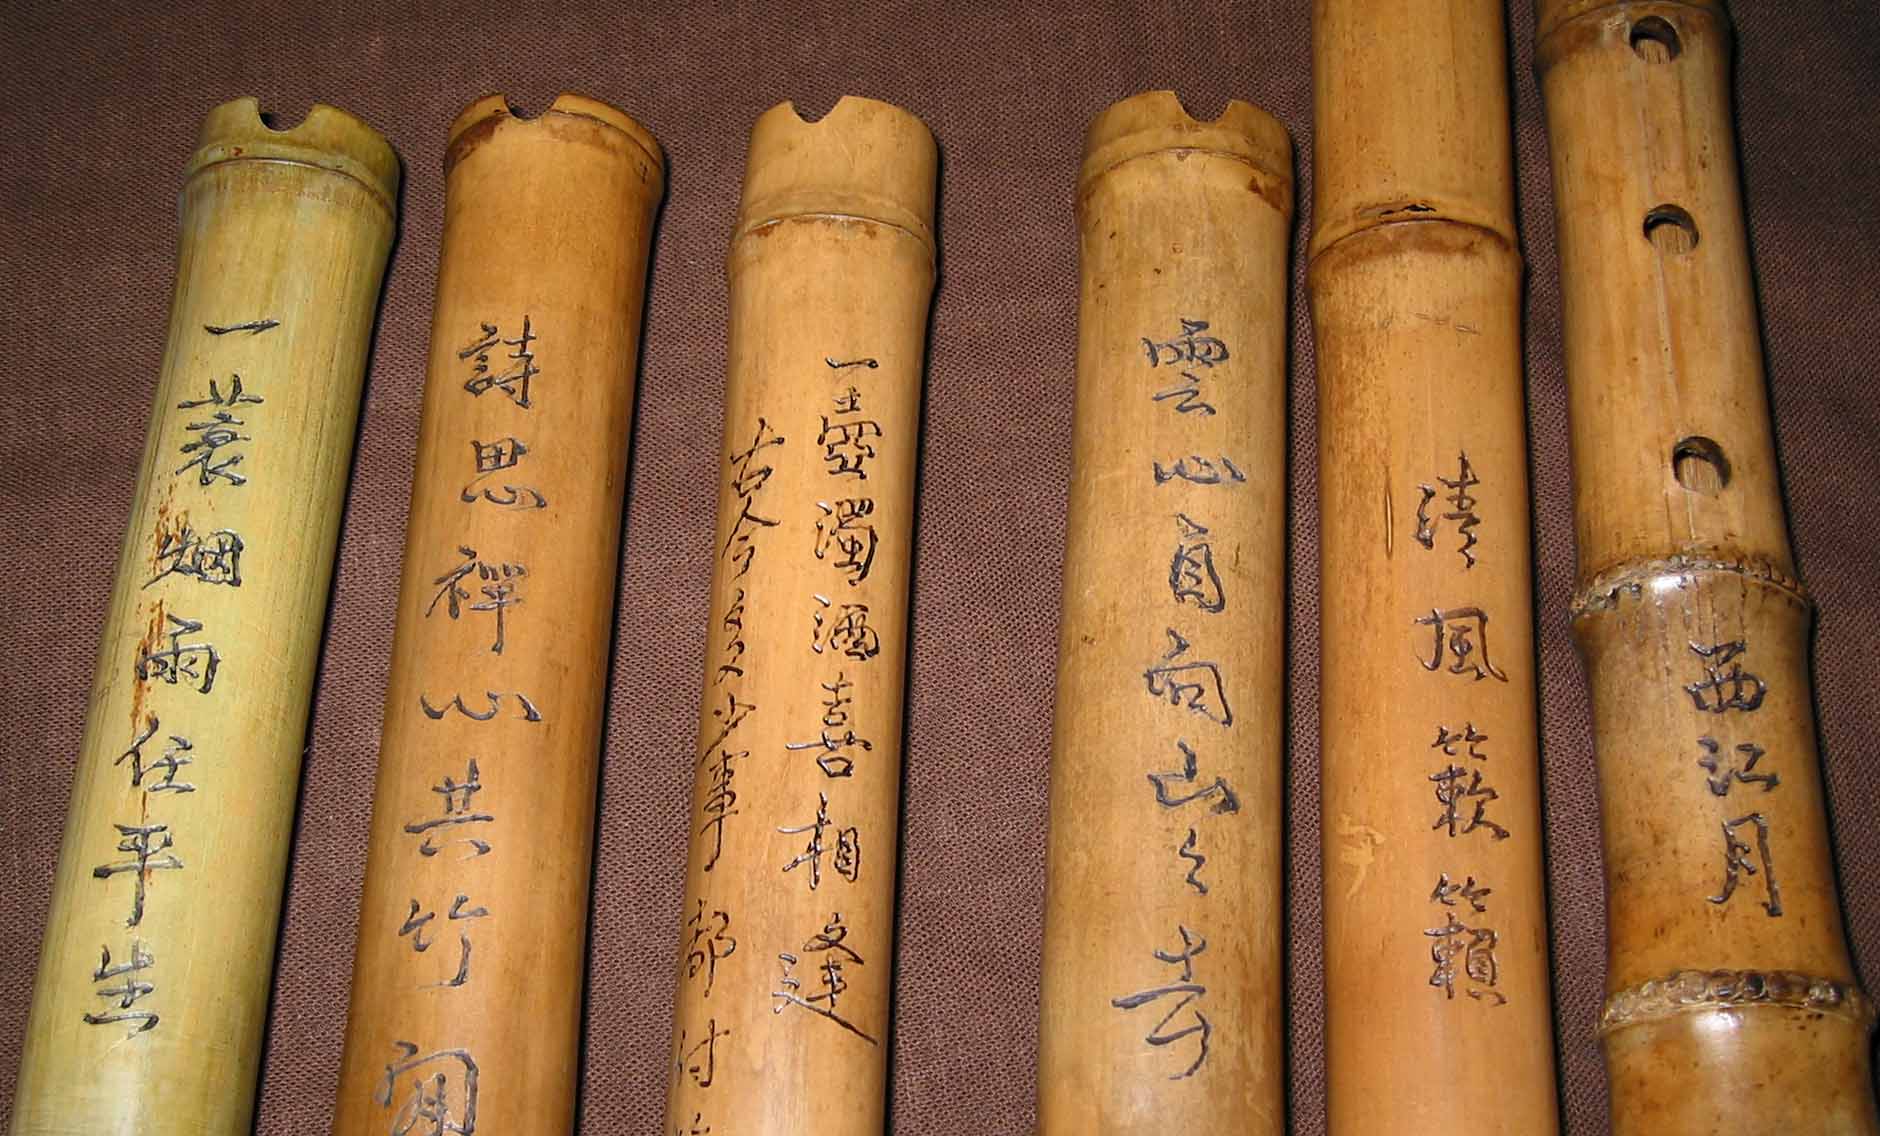 一蓑烟雨任平生
詩思禪心共竹閒
一壺濁酒喜相逢
古今多少事都付
雲心自向山山去
清風簌籟
西江月